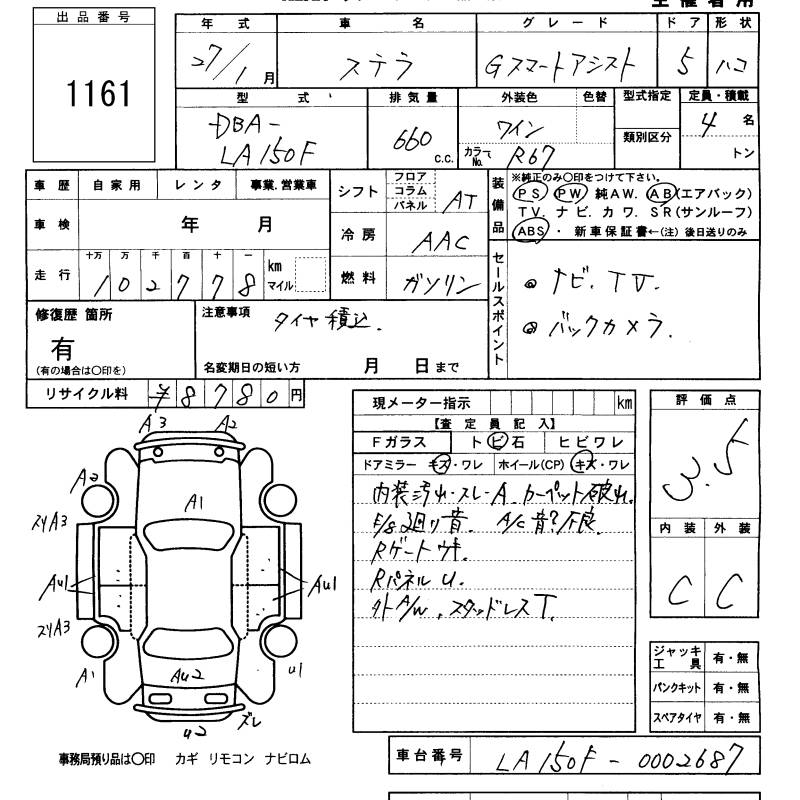 出品番号
1161
年式 車名 グレード ドア 形状
27/1月 ステラ Gスマートアシスト 5 ハコ
型式 排気量 外装色 色替 型式指定 定員・積載
DBA-
LA150F 660 c.c. ワイン 4名
カラーNo. R67 類別区分 トン
車歴 自家用 レンタ 事業.営業車
シフト フロア コラム パネル AT
装備品 ※純正のみ〇印をつけて下さい。
PS PW 純AW. AB(エアバック)
TV. ナビ. カワ. SR(サンルーフ)
ABS・新車保証書←(注)後日送りのみ
車検 年 月
冷房 AAC
走行 十万 万 千 百 十 一
102778 km マイル
燃料 ガソリン
セールスポイント
◎ナビ.TV.
◎バックカメラ.
修復歴 箇所
有
(有の場合は〇印を)
注意事項
タイヤ積込.
名変期日の短い方 月 日まで
リサイクル料 ¥8780円
現メーター指示 km
【査定員記入】
Fガラス トビ石 ヒビワレ
ドアミラー キズ・ワレ ホイール(CP) キズ・ワレ
内装汚れ・スレ-A.カーペット破れ.
E/g廻り音. A/C音?不良.
Rゲートウキ.
RパネルU.
外A/W.スタッドレスT.
評価点
3.5
内装 外装
C C
ジャッキ工具 有・無
パンクキット 有・無
スペアタイヤ 有・無
A3 A2
A2
A1
スリA3
AU1 AU1
スリA3
A1 AU2 U1
U2 ズレ
事務局預り品は〇印 カギ リモコン ナビロム
車台番号 LA150F-0002687